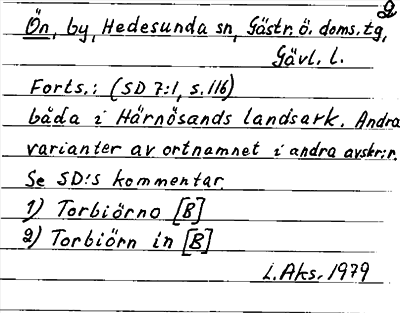 2
Ön, by, Hedesunda sn, Gästr. ö. doms. tg,
Gävl. l.
Forts.: (SD 7:1, s. 116)
båda i Härnösands landsark. Andra
varianter av ortnamnet i andra avskr:r.
Se SD:s kommentar.
1) Torbiörno [B]
2) Torbiörn in [B]
L. Aks. 1979